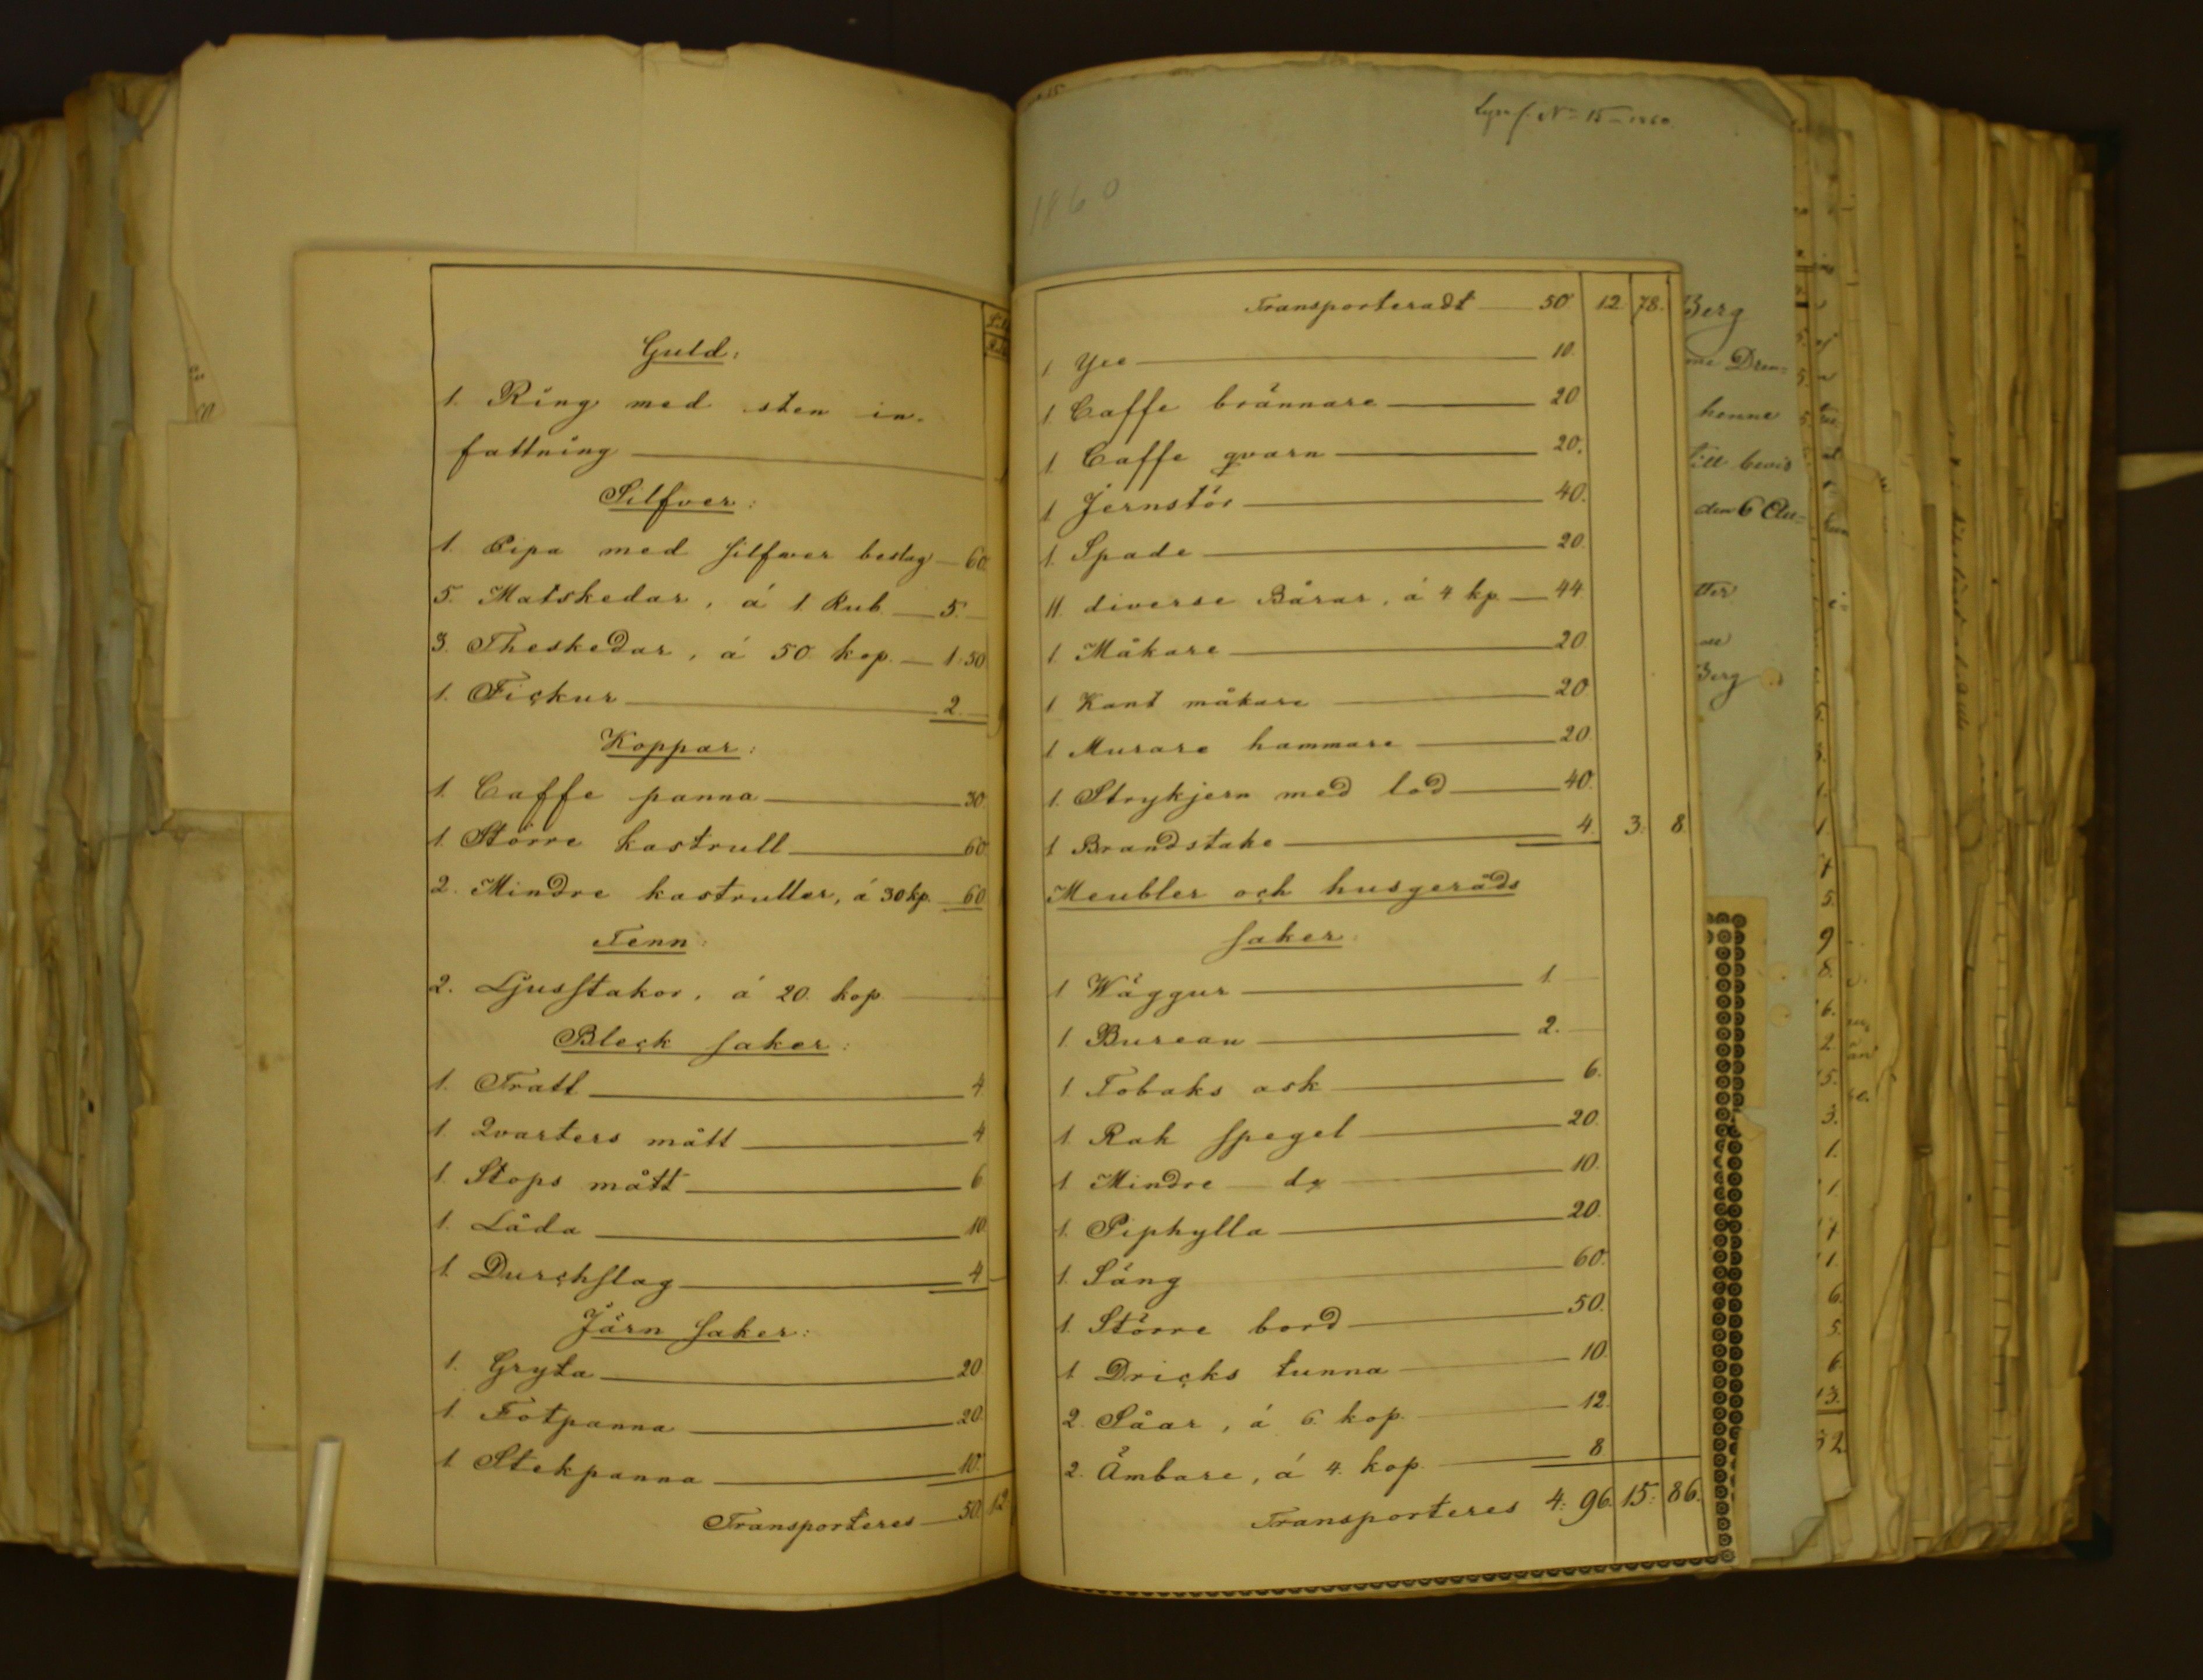 Guld:
1. Ring med sten in-
fattning
Silfver:
1. Pipa med silfver beslag 60.
5. Matskedar, á 1 Rub. 5.
3. Theskedar, á 50 kop. 1:50
1. Fickur 2.
Koppar:
1. Caffe panna 30
1. Större kastrull 60
2. Mindre kastruller, á 30 kp. 60
Tenn:
2. Ljusstakor, á 20. kop.
Bleck saker:
1. Tratt 4
1. Qvarters mått 4
1. Stops mått 6
1. Låda 10
1. Durchslag 4
Järn saker:
1. Gryta 20
1. Fotpanna 20
1. Stekpanna 10.
Transporteres 50. 12.
1860
Transporteradt 50. 12. 78.
1 Yxe 10.
1. Caffe brännare 20
1. Caffe qvarn 20.
1. Jernstör 40.
1. Spade 20.
11. diverse Bårar, á 4 kp. 44.
1. Måkare 20
1 Kant måkare 20.
1 Murare hammare 20.
1. Strykjern med lod 40.
1 Brandstake 4. 3. 8.
Meubler och husgeråds
saker
1 Wäggur 1.
1. Bureau 2.
1 Tobaks ask 6.
1 Rak spegel 20.
1 Mindre do 10.
1. Piphylla 20.
1. Säng 60.
1. Större bord 50.
1 Dricks tunna 10.
2. Såar, á 6. kop. 12.
2. Ämbare, á 4. kop. 8
Transporteres 4: 96. 15: 86.
Berg
henne
till bevis
den 6
Berg